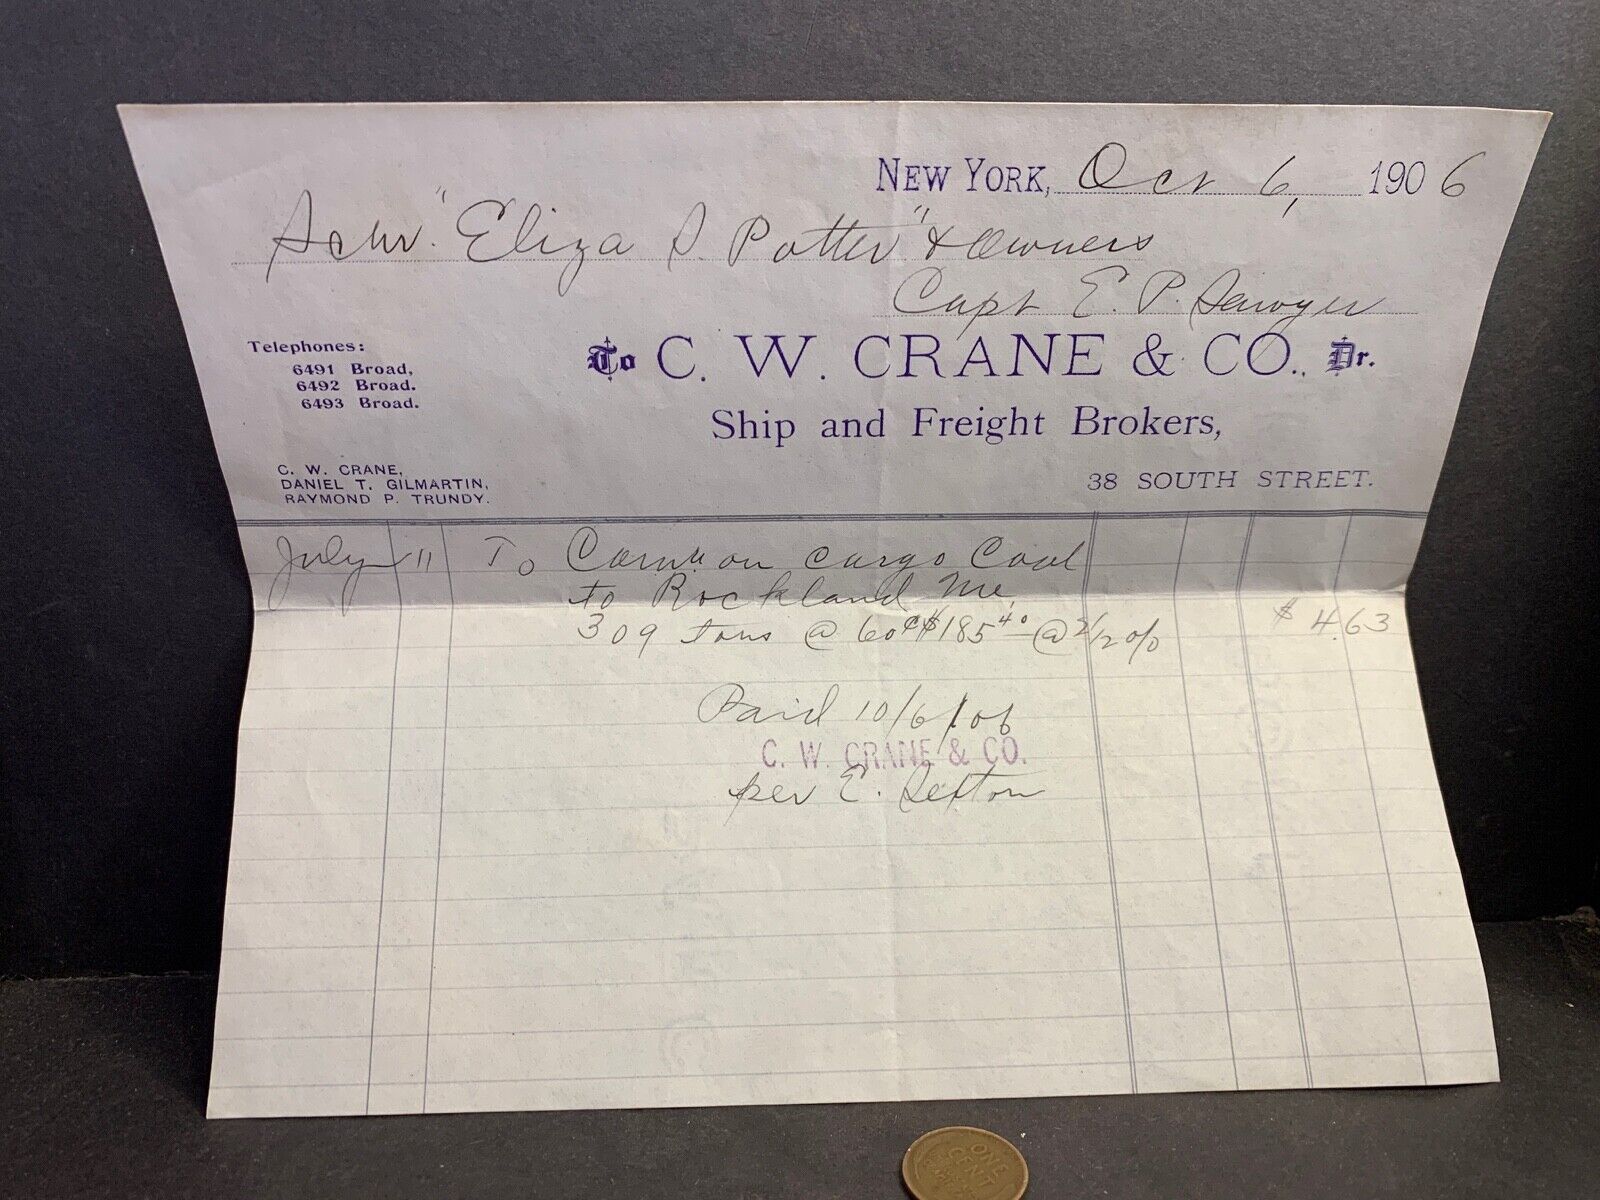 NEW YORK, Oct 6, 1906
Schr. "Eliza S. Potter" & Owners
Capt E. P. Sawyer
Telephones:
6491 Broad,
6492 Broad.
6493 Broad.
To C. W. CRANE & CO., Dr.
Ship and Freight Brokers,
C. W. CRANE,
DANIEL T. GILMARTIN,
RAYMOND P. TRUNDY.
38 SOUTH STREET.
July 11 To Comn on cargo Coal
to Rockland Me,
309 tons @ 60¢ $185.40 @ 2 1/2 o/o $4.63
Paid 10/6/06
C. W. CRANE & CO.
per E. Sexton
ONE
CENT